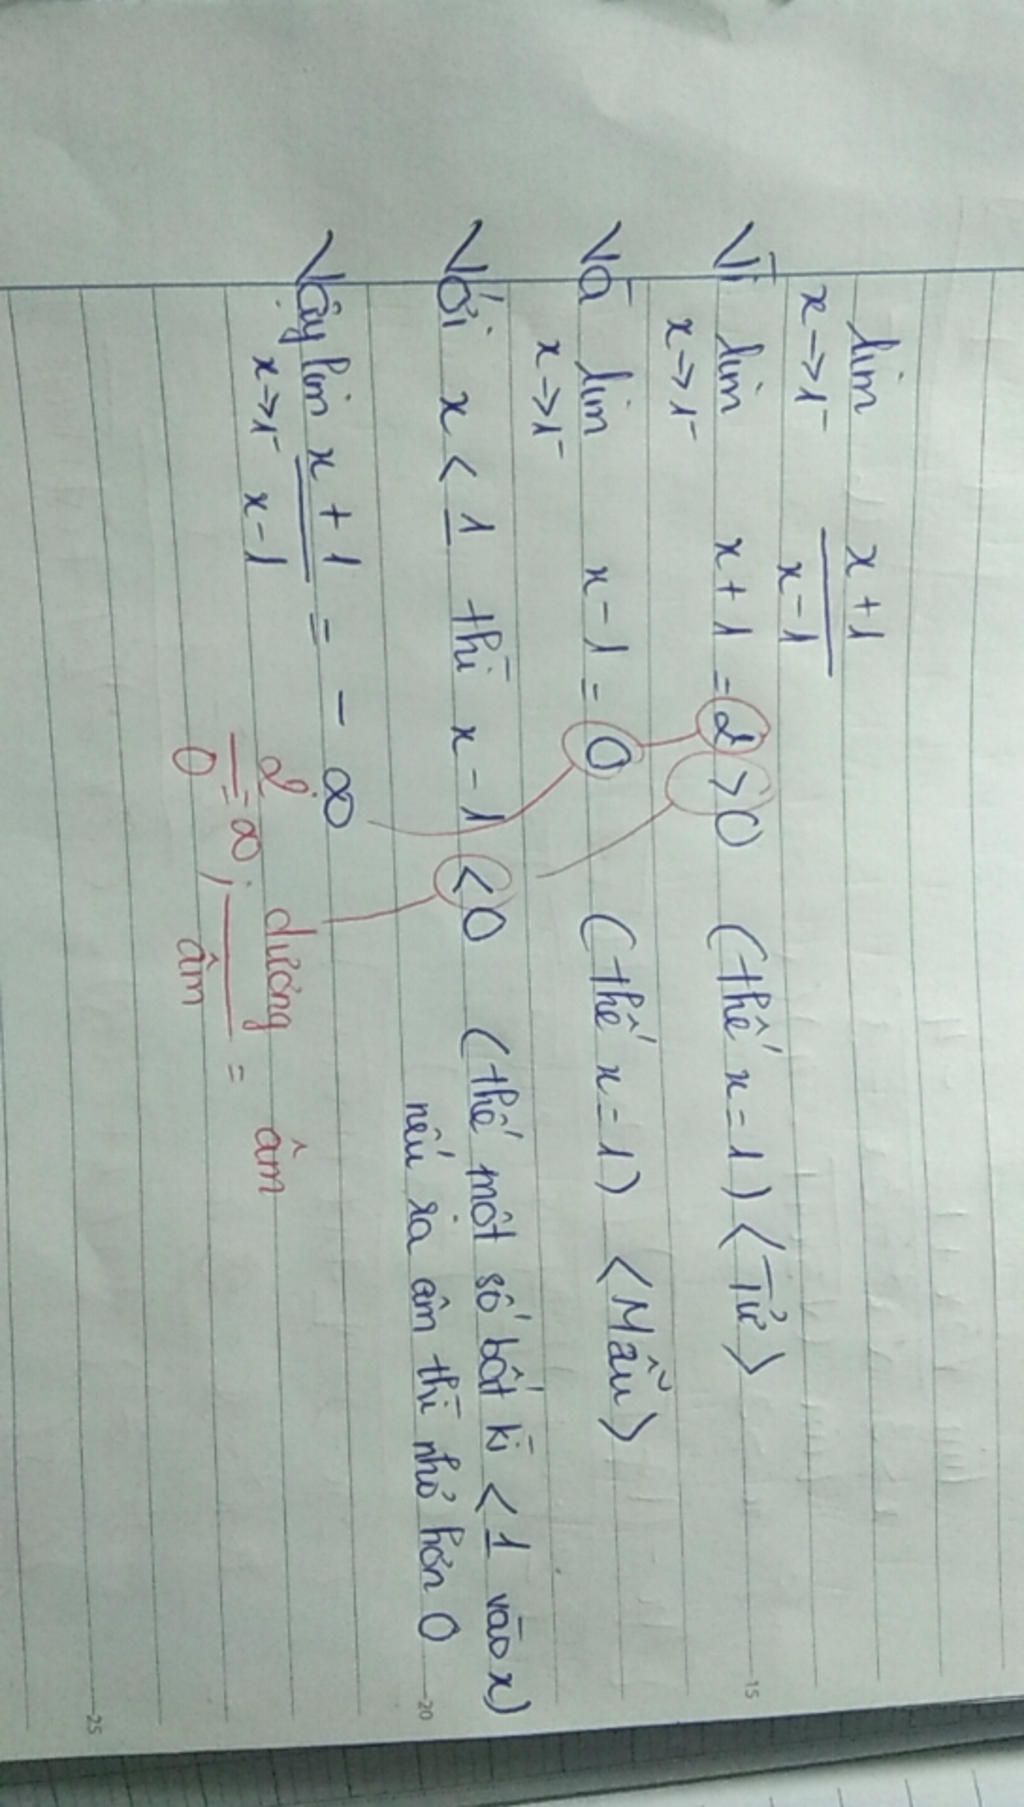 lim x+1
x→1⁻ x-1
Vì lim x+1 = 2 > 0 (thế x = 1) <Tử>
x→1⁻
Và lim x-1 = 0 (thế x = 1) <Mẫu>
x→1⁻
Với x < 1 thì x - 1 < 0 (thế một số bất kì < 1 vào x)
nếu ra âm thì nhỏ hơn 0
Vậy lim x+1 = - ∞
x→1⁻ x-1
2 = ∞ ; dương = âm
0 âm
15
20
25